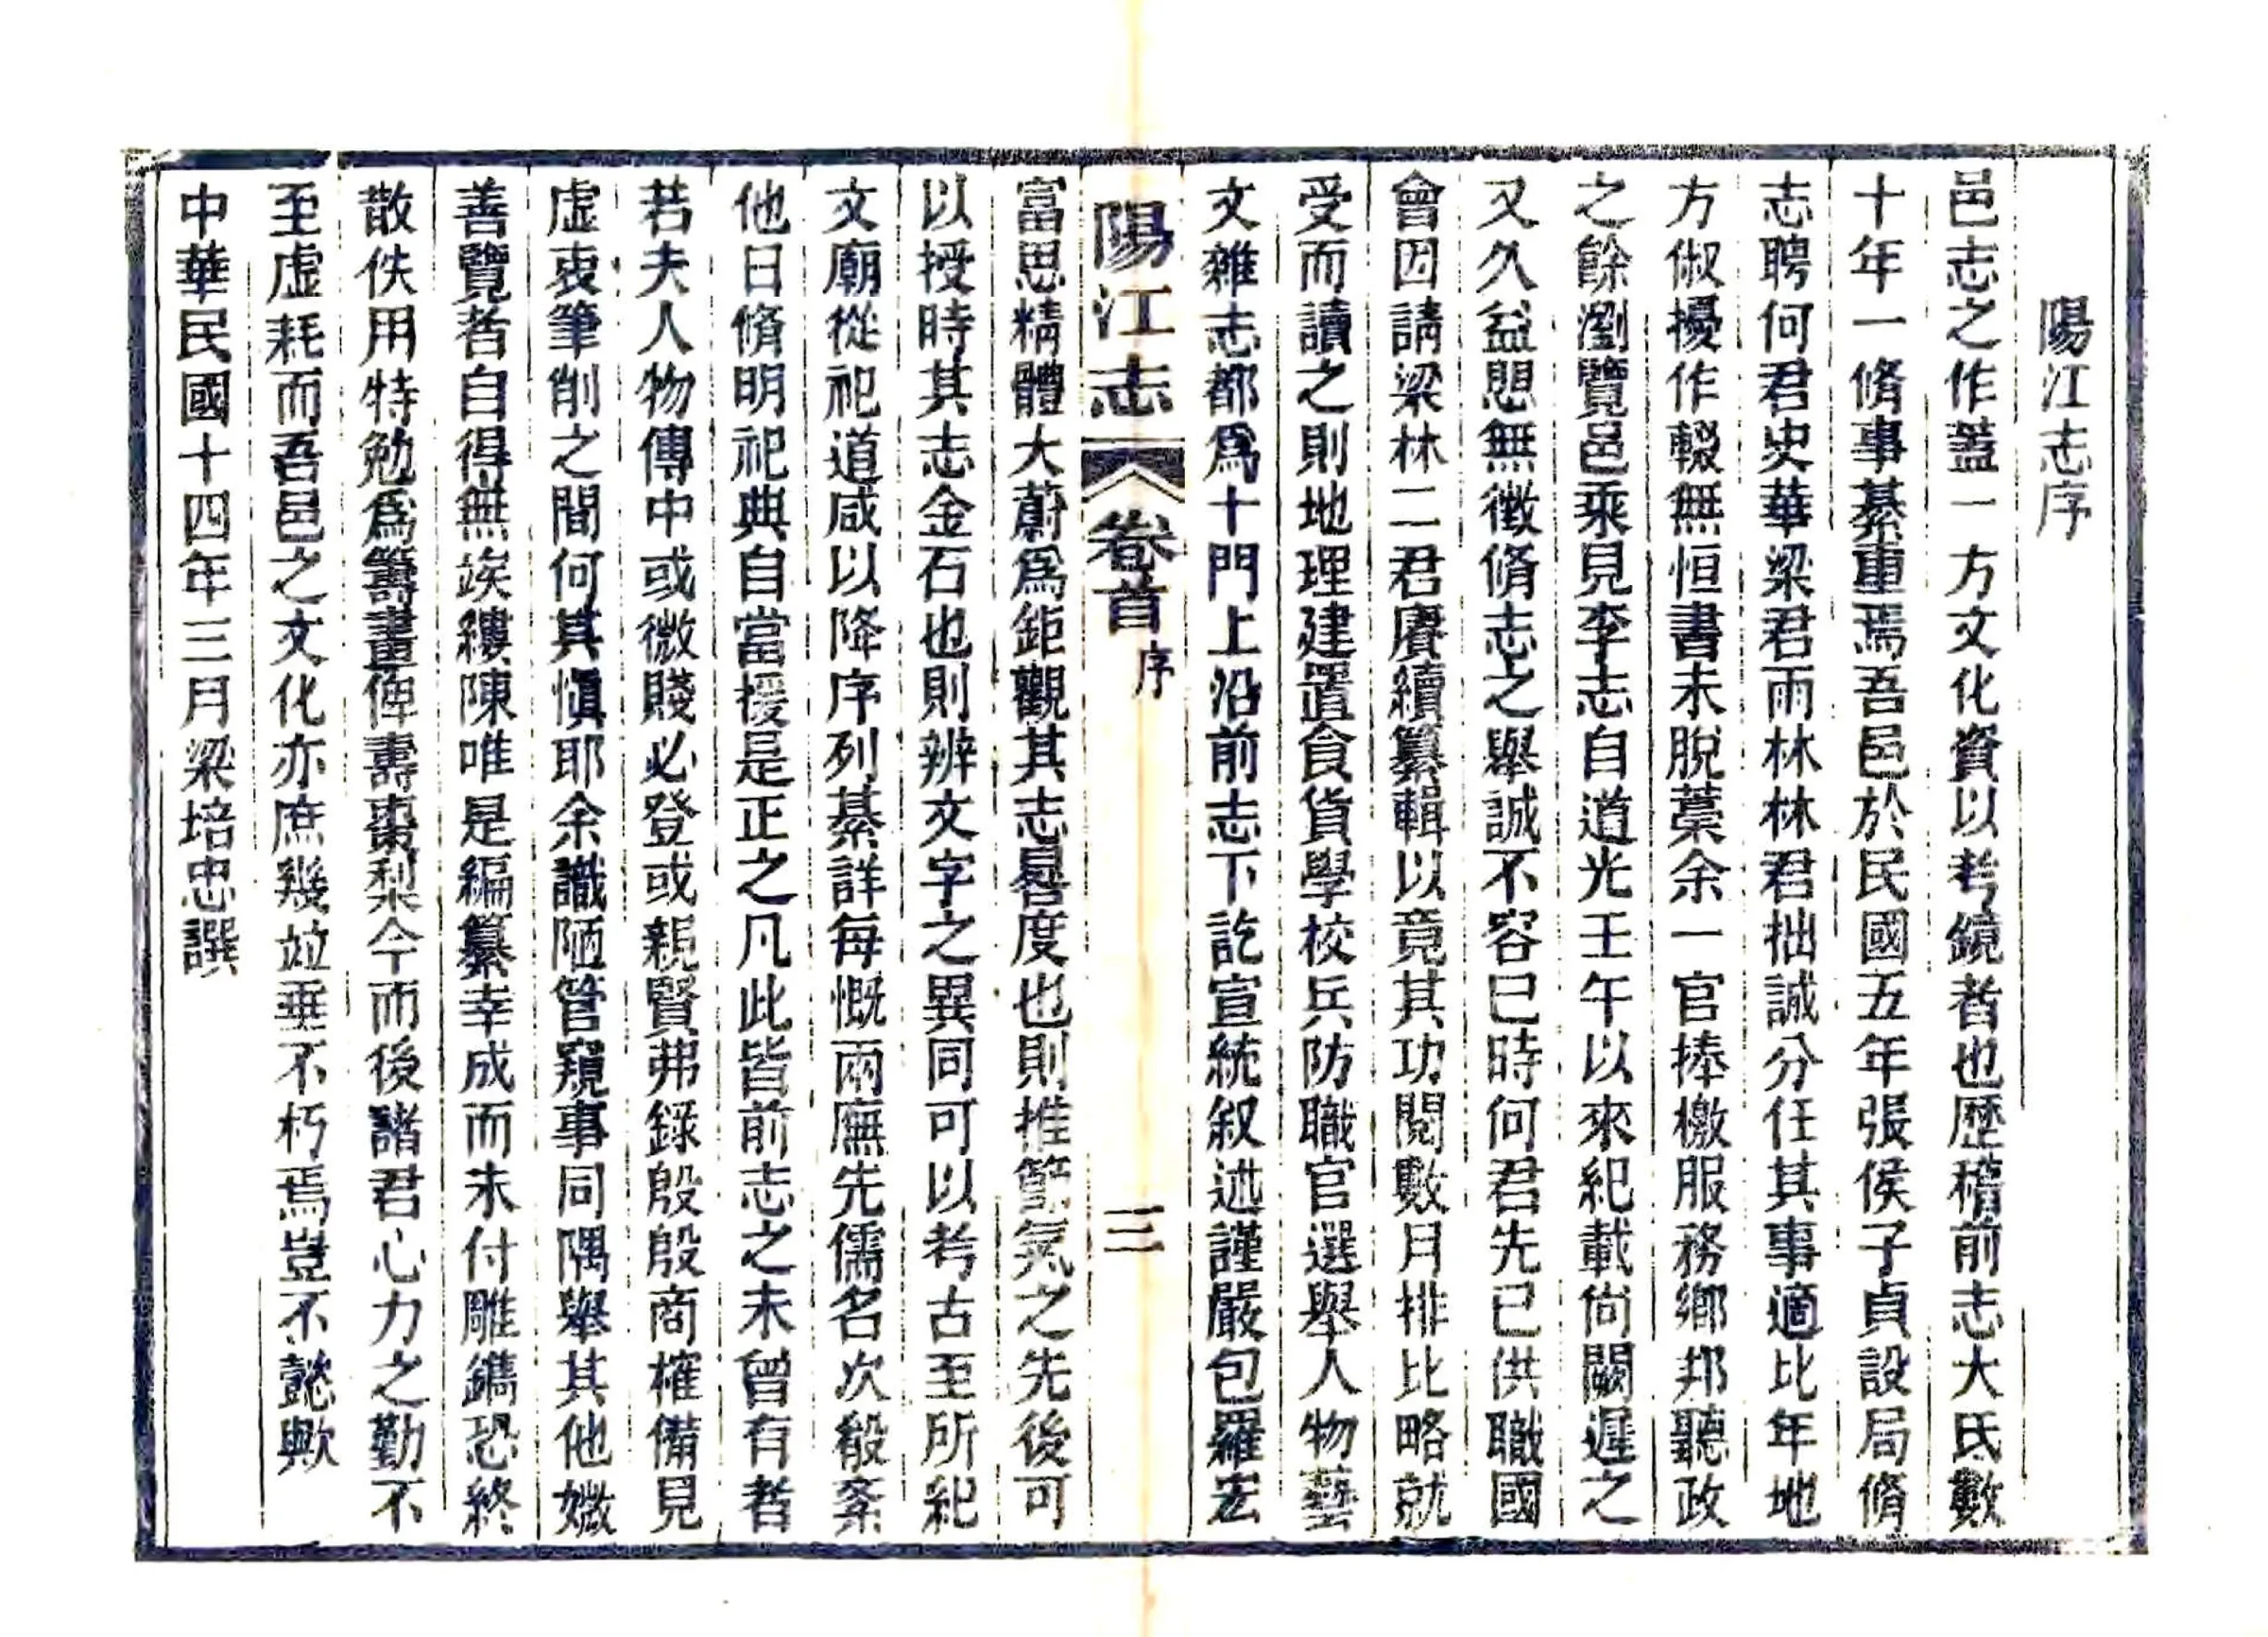 陽江志序
邑志之作蓋一方文化資以考鏡者也歷稽前志大氐數
十年一脩事綦重焉吾邑於民國五年張侯子貞設局脩
志聘何君史華梁君雨林林君拙誠分任其事適比年地
方俶擾作輟無恒書未脫藁余一官捧檄服務鄉邦聽政
之餘瀏覽邑乘見李志自道光壬午以來紀載尙闕遲之
又久益懼無徵脩志之舉誠不容已時何君先已供職國
會因請梁林二君賡續纂輯以竟其功閱數月排比略就
受而讀之則地理建置食貨學校兵防職官選舉人物藝
文雜志都爲十門上沿前志下訖宣統叙述謹嚴包羅宏
陽江志 卷首 序 三
富思精體大蔚爲鉅觀其志晷度也則推節氣之先後可
以授時其志金石也則辨文字之異同可以考古至所紀
文廟從祀道咸以降序列綦詳每慨兩廡先儒名次殽紊
他日脩明祀典自當援是正之凡此皆前志之未曾有者
若夫人物傳中或微賤必登或親賢弗錄殷殷商榷備見
虛衷筆削之間何其愼耶余識陋管窺事同隅舉其他媺
善覽者自得無竢縷陳唯是編纂幸成而未付雕鐫恐終
散佚用特勉爲籌畫俾壽棗梨今而後諸君心力之勤不
至虛耗而吾邑之文化亦庶幾竝垂不朽焉豈不懿歟
中華民國十四年三月梁培忠譔